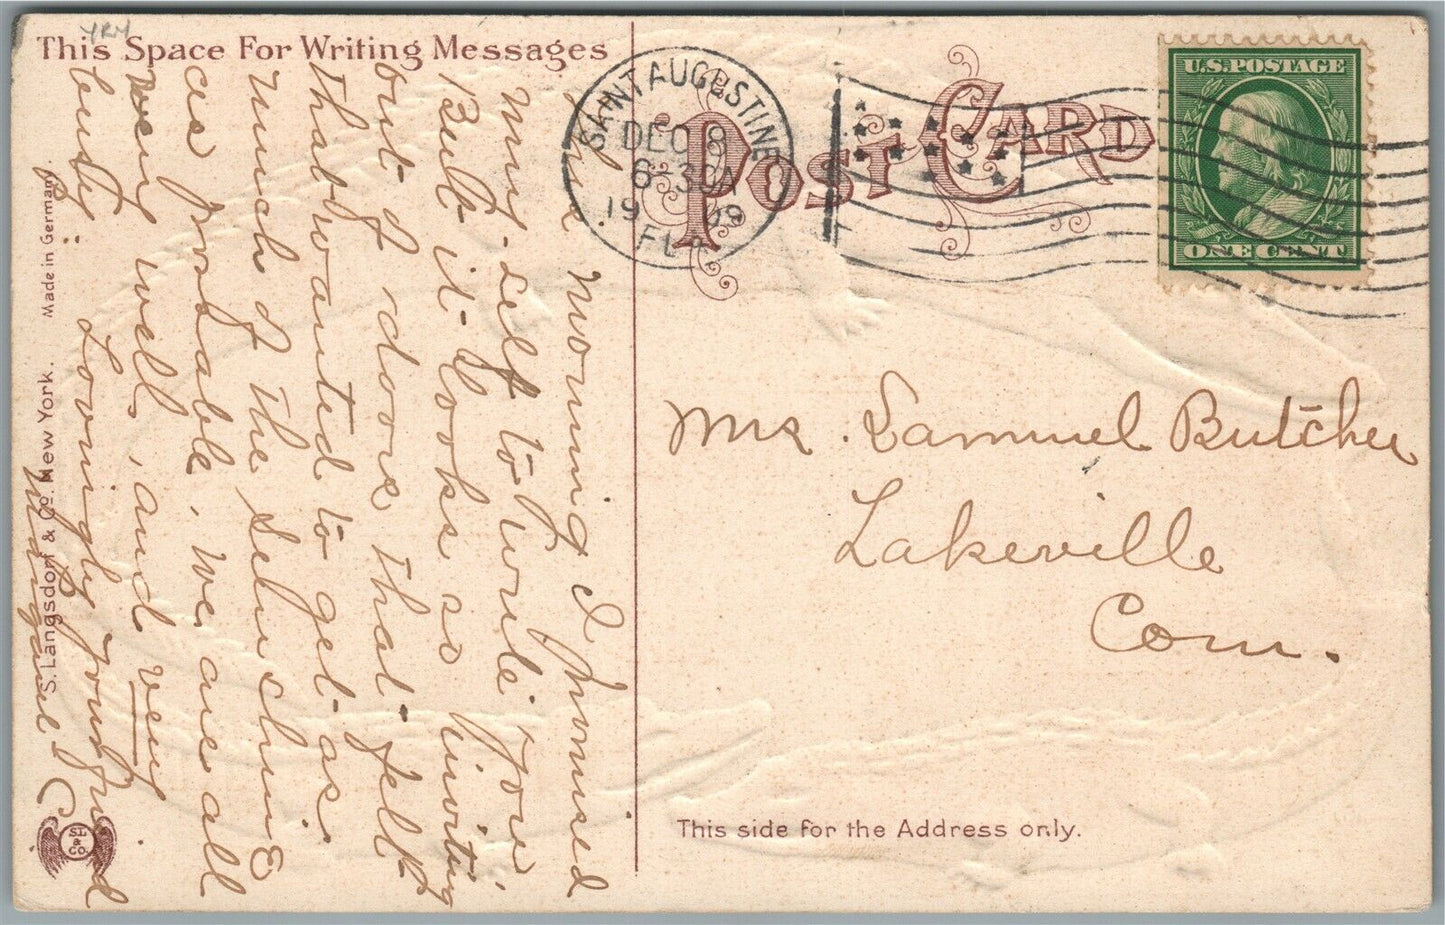 This Space For Writing Messages
This morning I promised
my-self to write you
But it looks so inviting
out of doors that I felt
that I wanted to get as
much of the sun shine
as probable, we are all
very well, and very
busy.
Lovingly your friend
S. Langsdorf & Co. New York. Made in Germany.
SL
&
CO.
SAINT AUGUSTINE
DEC 8
6-30A
1909
FLA.
POST CARD
U.S. POSTAGE
ONE CENT
Mrs. Samuel Butcher
Lakeville
Conn.
This side for the Address only.